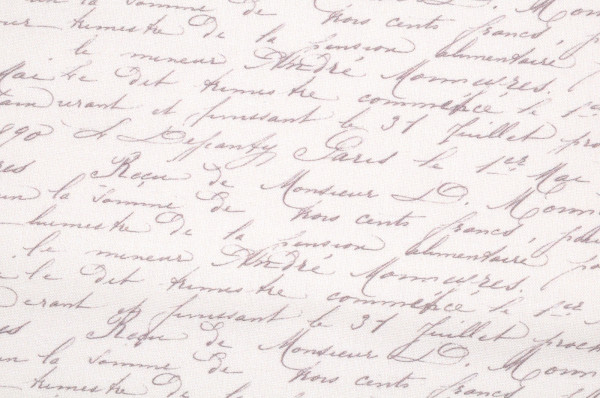 la somme de trois cents francs,
trimestre de la pension alimentaire
le mineur André Monnieres.
Mai Le dit trimestre commence le 1er
courant et finissant le 31 Juillet
1890 Paris le 1er Mai
Reçu de Monsieur D. Monn
la somme de trois cents francs,
trimestre de la pension alimentaire
le mineur André Monnieres.
le dit trimestre commence le 1er
courant et finissant le 31 Juillet proch
Reçu de Monsieur D. Monn
la somme de trois cents francs
trimestre de la pension